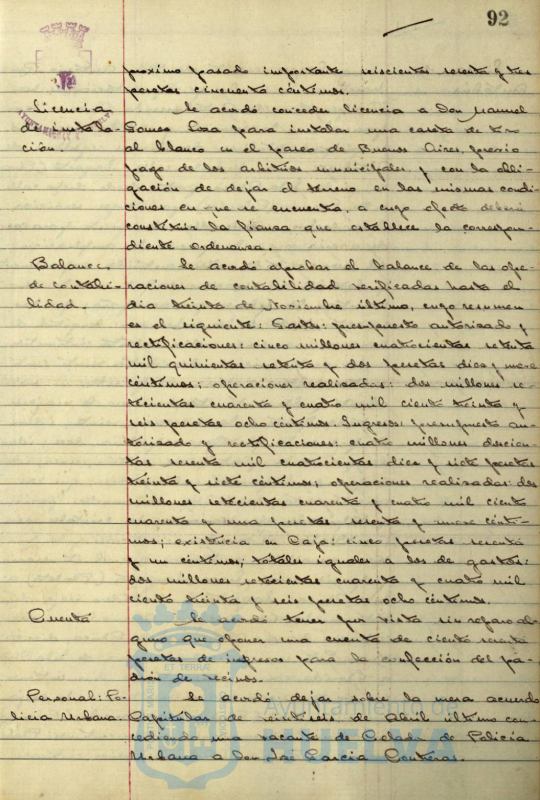 92
próximo pasado importante seiscientas sesenta y tres
pesetas cincuenta céntimos.
Licencia
de instala-
ción.
Se acordó conceder licencia a Don Manuel
Gomez para instalar una caseta de tiro
al blanco en el paseo de Buenos Aires, previo
pago de los arbitrios municipales, y con la obli-
gación de dejar el terreno en las mismas condi-
ciones en que se encuentra, a cuyo efecto deberá
constituir la fianza que establece la correspon-
diente ordenanza.
Balance
de contabi-
lidad.
Se acordó aprobar el balance de las ope-
raciones de contabilidad verificadas hasta el
dia treinta de Noviembre último, cuyo resumen
es el siguiente: Gastos: presupuesto autorizado y
rectificaciones: cinco millones cuatrocientas
mil quinientas setenta y dos pesetas diez y nueve
céntimos; operaciones realizadas: dos millones se-
tecientas cuarenta y cuatro mil ciento treinta y
seis pesetas ocho céntimos. Ingresos: presupuesto au-
torizado y rectificaciones: cuatro millones doscien-
tas sesenta mil cuatrocientas diez y siete pesetas
treinta y siete céntimos; operaciones realizadas: dos
millones setecientas cuarenta y cuatro mil ciento
cuarenta y una pesetas sesenta y nueve cénti-
mos; existencia en Caja: cinco pesetas sesenta
y un céntimos; totales iguales a los de gastos:
dos millones setecientas cuarenta y cuatro mil
ciento treinta y seis pesetas ocho céntimos.
Cuenta
Se acordó tener por vista sin reparo al-
guno que oponer una cuenta de ciento sesenta
pesetas de ingresos para la confección del pa-
drón de vecinos.
Personal: Po-
licia Urbana.
Se acordó dejar sobre la mesa acuerdo
Capitular de veintiseis de Abril último con-
cediendo una vacante de Celador de Policía
Urbana a Don José García Contreras.
Ayuntamiento de
HUELVA